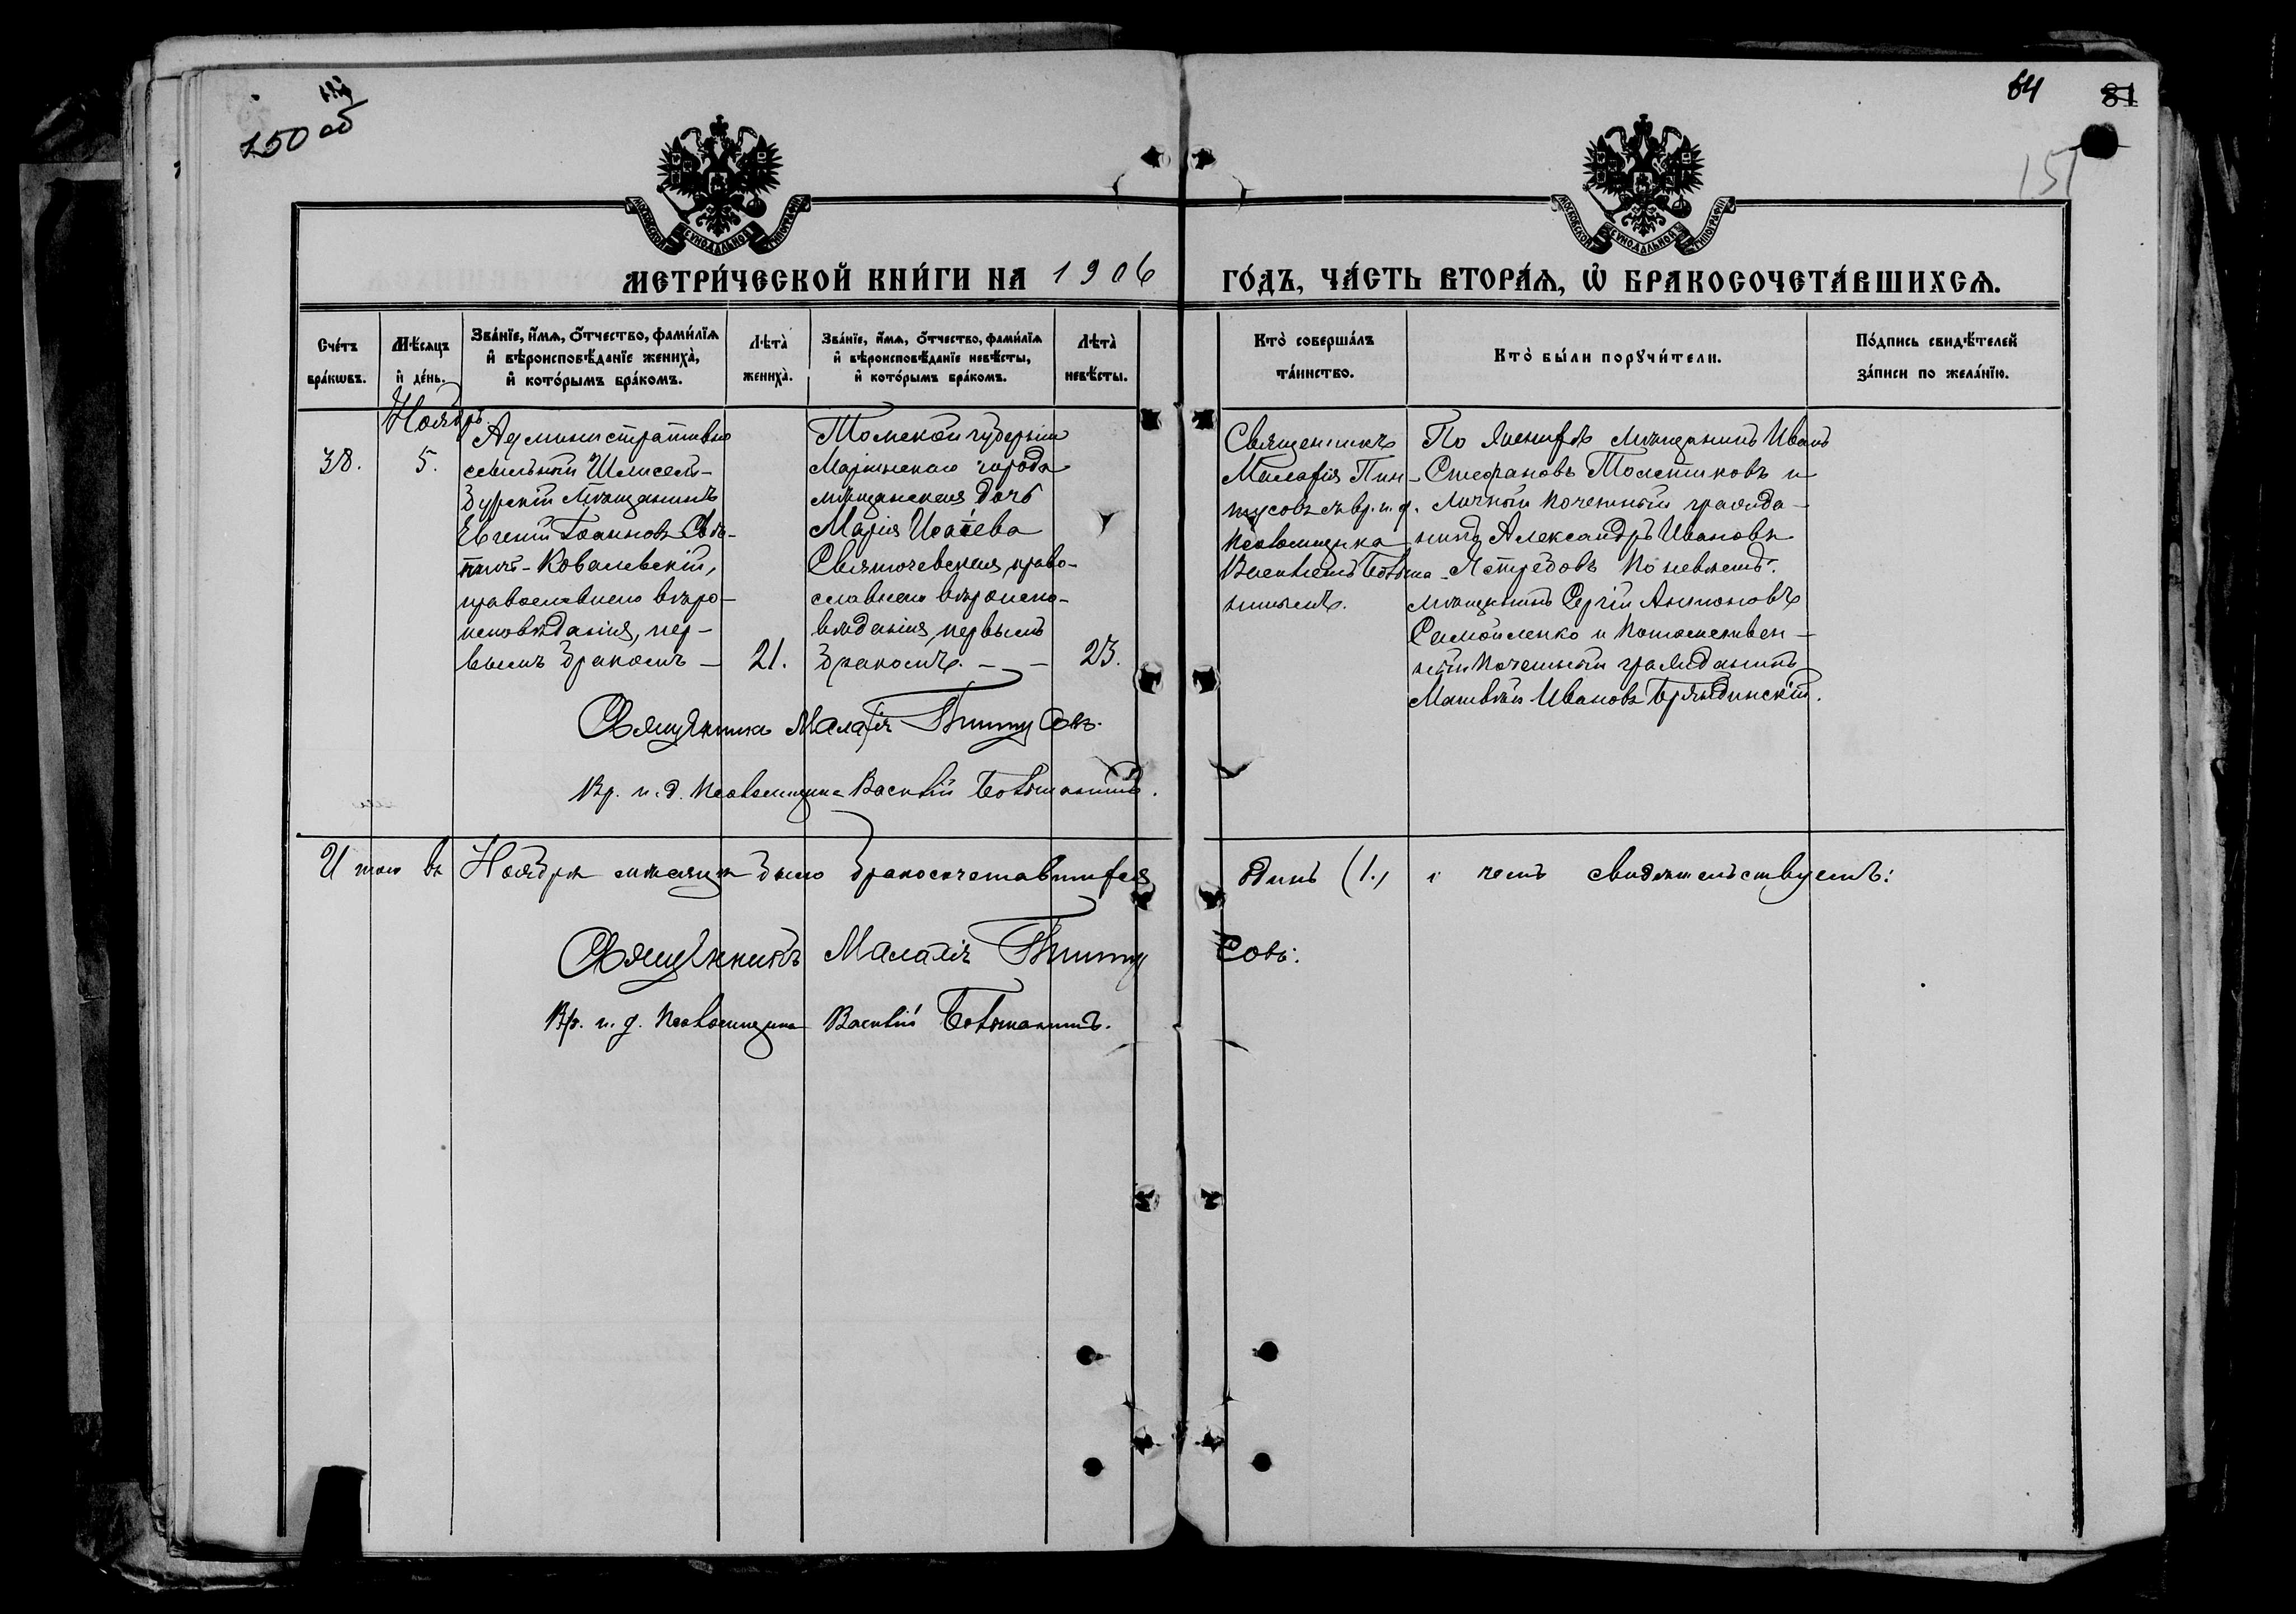 150 об
84
81
151
МОСКОВСКОЙ СѴНОДАЛЬНОЙ ТИПОГРАФІИ
МОСКОВСКОЙ СѴНОДАЛЬНОЙ ТИПОГРАФІИ
МЕТРИ́ЧЕСКОЙ КНИ́ГИ НА 1906 ГО́ДЪ, ЧА́СТЬ ВТОРА́Ѧ, Ѡ҆ БРАКОСОЧЕТА́ВШИХСѦ.
Сче́тъ бра́кѡвъ.
Мѣ́сяцъ и҆ де́нь.
Зва́нїе, и҆́мѧ, ѻ҆́тчество, фами́лїѧ
и҆ вѣроисповѣ́данїе жениха̀,
и҆ кото́рымъ бра́комъ.
Лѣта̀ жениха̀.
Зва́нїе, и҆́мѧ, ѻ҆́тчество, фами́лїѧ
и҆ вѣроисповѣ́данїе невѣ́сты,
и҆ кото́рымъ бра́комъ.
Лѣта̀ невѣ́сты.
Кто̀ соверша́лъ
та́инство.
Кто̀ бы́ли порꙋчи́тели.
По́дпись свидѣ́телей
за́писи по жела́нїю.
38.
Ноябрь
5.
Административно
ссыльный Шлиссель-
бургскій мѣщанинъ
Евгеній Іоанновъ
Ковалевскій,
православнаго вѣро-
исповѣданія, пер-
вымъ бракомъ —
21.
Томской губерніи
Маріинскаго города
мѣщанская дочь
Марія Исаіева
право-
славнаго вѣроиспо-
вѣданія, первымъ
бракомъ. — —
23.
Священникъ
Малахія Пин-
тусовъ съ вр. и. д.
псаломщика
Василіемъ
По женихѣ мѣщанинъ Иванъ
Стефановъ Толстиковъ и
личный почетный гражда-
нинъ Александръ Ивановъ
Ястребовъ по невѣстѣ.
мѣщанинъ Сергій Антоновъ
Самойленко и потомствен-
ный почетный гражданинъ
Матвѣй Ивановъ
Священникъ Малахія Пинтусовъ.
Вр. и. д. псаломщика Василій
Итого въ Ноябрѣ мѣсяцѣ было бракосочетавшихся одинъ (1.) о чемъ свидѣтельствуемъ:
Священникъ Малахія Пинтусовъ.
Вр. и. д. псаломщика Василій